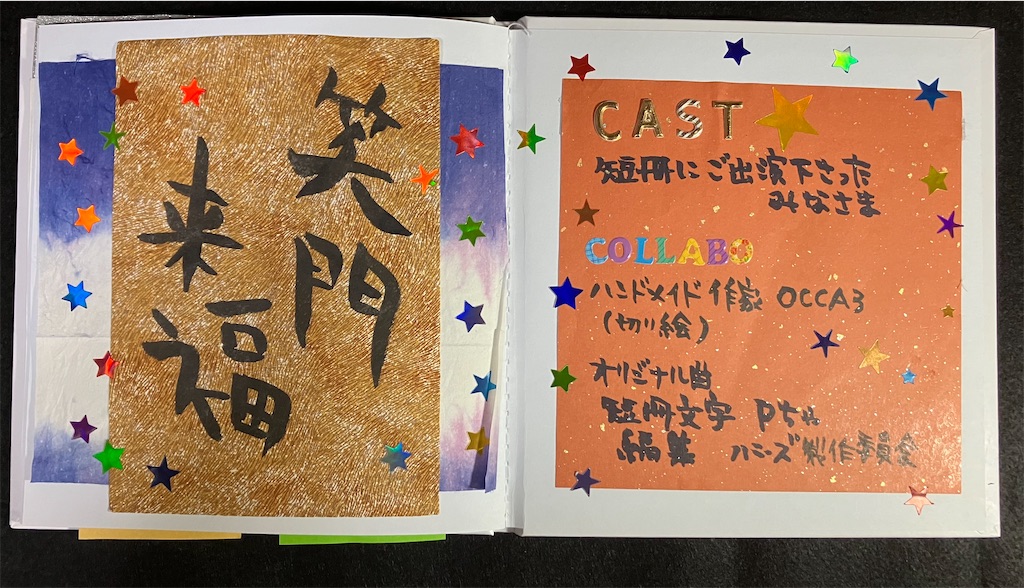 笑門
来福
CAST
短冊にご出演下さった
みなさま
COLLABO
ハンドメイド作家 OCCA3
(切り絵)
オリジナル曲
短冊文字 Pちゃん
編集 ハミーズ製作委員会